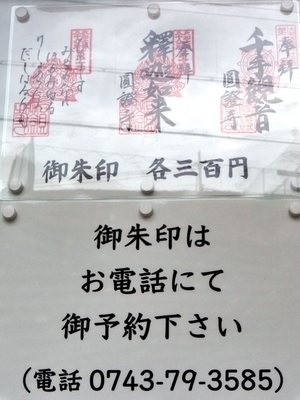 奉拝
千手観音
圓證寺
奉拝
釋迦如来
圓證寺
御朱印 各三百円
御朱印は
お電話にて
御予約下さい
(電話 0743-79-3585)